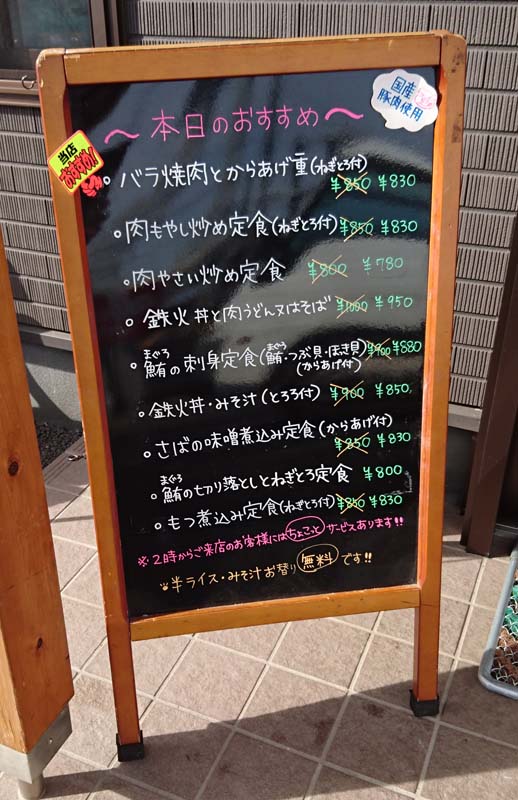 国産
豚肉使用
～本日のおすすめ～
当店
おすすめ!
。バラ焼肉とからあげ重(ねぎとろ付)
¥850 ¥830
。肉もやし炒め定食(ねぎとろ付) ¥850 ¥830
。肉やさい炒め定食 ¥800 ¥780
。鉄火丼と肉うどん又はそば ¥1000 ¥950
まぐろ まぐろ
。鮪の刺身定食(鮪・つぶ貝・ほき貝) ¥900 ¥880
(からあげ付)
。鉄火丼・みそ汁(とろろ付) ¥900 ¥850
。さばの味噌煮込み定食(からあげ付)
¥850 ¥830
まぐろ
。鮪の切り落としとねぎとろ定食 ¥800
。もつ煮込み定食(ねぎとろ付) ¥850 ¥830
※2時からご来店のお客様にはちょこっとサービスあります!!
半ライス・みそ汁お替り無料です!!